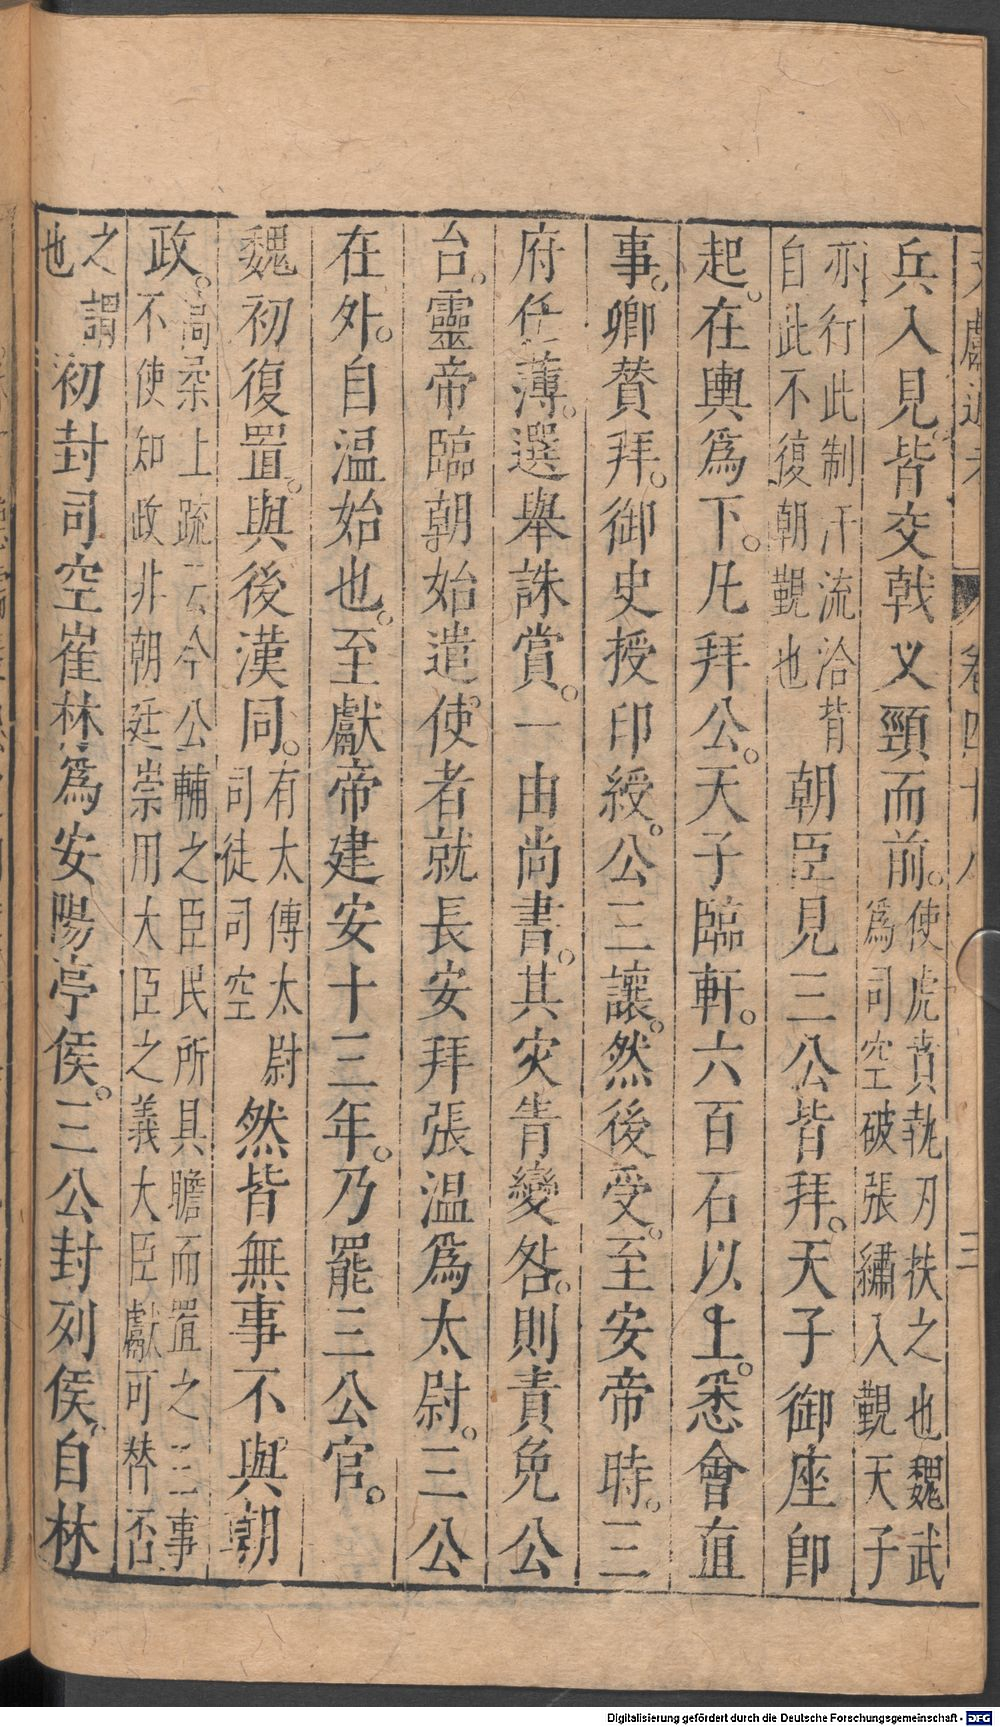 文獻通考 卷四十八 三
兵入見。皆交戟叉頸而前。使虎賁執刃扶之也魏武
為司空破張繡入覲天子
亦行此制汗流洽背
自此不復朝覲也 朝臣見三公皆拜。天子御座即
起。在輿為下。凡拜公。天子臨軒。六百石以上。悉會直
事。卿贊拜。御史授印綬。公三讓。然後受。至安帝時。三
府任薄。選舉誅賞。一由尚書。其灾眚變咎。則責免公
台。靈帝臨朝。始遣使者就長安拜張温為太尉。三公
在外。自温始也。至獻帝建安十三年。乃罷三公官。
魏初復置。與後漢同。有太傅太尉
司徒司空 然皆無事不與朝
政。高柔上疏云今公輔之臣民所具瞻而置之三事
不使知政非朝廷崇用大臣之義大臣獻可替否
之謂
也 初封司空崔林為安陽亭侯。三公封列侯。自林
Digitalisierung gefördert durch die Deutsche Forschungsgemeinschaft - DFG